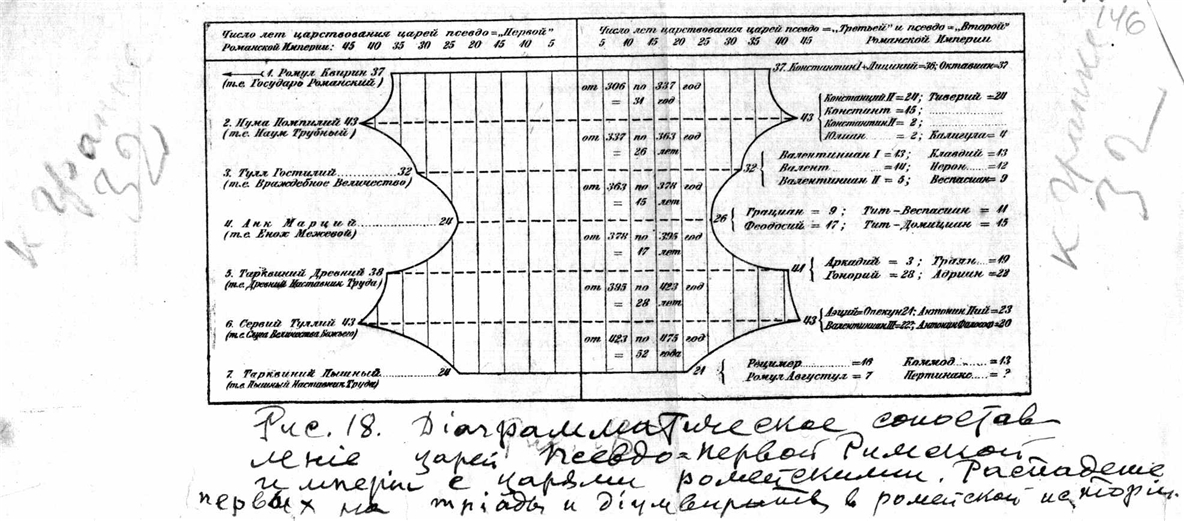 146
к Гранке 32
к Гранке 32
Число лет царствования царей псевдо=„Первой"
Романской Империи: 45 40 35 30 25 20 15 10 5
Число лет царствования царей псевдо=„Третьей" и псевдо=„Второй"
5 10 15 20 25 30 35 40 45 Романской Империи
1. Ромул Квирин 37
(т.е. Государь Романский)
2. Нума Помпилий 43
(т.е. Наум Трубный)
3. Тулл Гостилий 32
(т.е. Враждебное Величество)
4. Анк Марций 24
(т.е. Енох Межевой)
5. Тарквиний Древний 38
(т.е. Древний Наставник Труда)
6. Сервий Туллий 43
(т.е. Слуга Величества Божьего)
7. Тарквиний Пышный 24
(т.е. Пышный Наставник Труда)
от 306 по 337 год
= 31 год
от 337 по 363 год
= 26 лет
от 363 по 378 год
= 15 лет
от 378 по 395 год
= 17 лет
от 395 по 423 год
= 28 лет
от 423 по 475 год
= 52 года
37. Константин I + Лициний=36; Октавиан=37
43 { Констанций II = 24; Тиверий = 24
Констант = 15;
Константин II = 2;
Юлиан = 2; Калигула = 4
32 { Валентиниан I = 13; Клавдий = 13
Валент = 14; Нерон = 12
Валентиниан II = 5; Веспасиан = 9
26 { Грациан = 9; Тит-Веспасиан = 11
Феодосий = 17; Тит-Домициан = 15
41 { Аркадий = 3; Траян = 19
Гонорий = 28; Адриан = 22
43 { Аэций=Опекун 21; Антонин Пий = 23
Валентиниан III = 22; Антонин Философ = 20
21 { Рецимер = 16 Коммод = 13
Ромул Августул = 7 Пертинакс = ?
Рис. 18. Діаграмматическое сопостав
леніе царей псевдо=первой Римской
имперіи с царями ромейскими. Распадение
первых на тріады и діумвираты в ромейской исторіи.